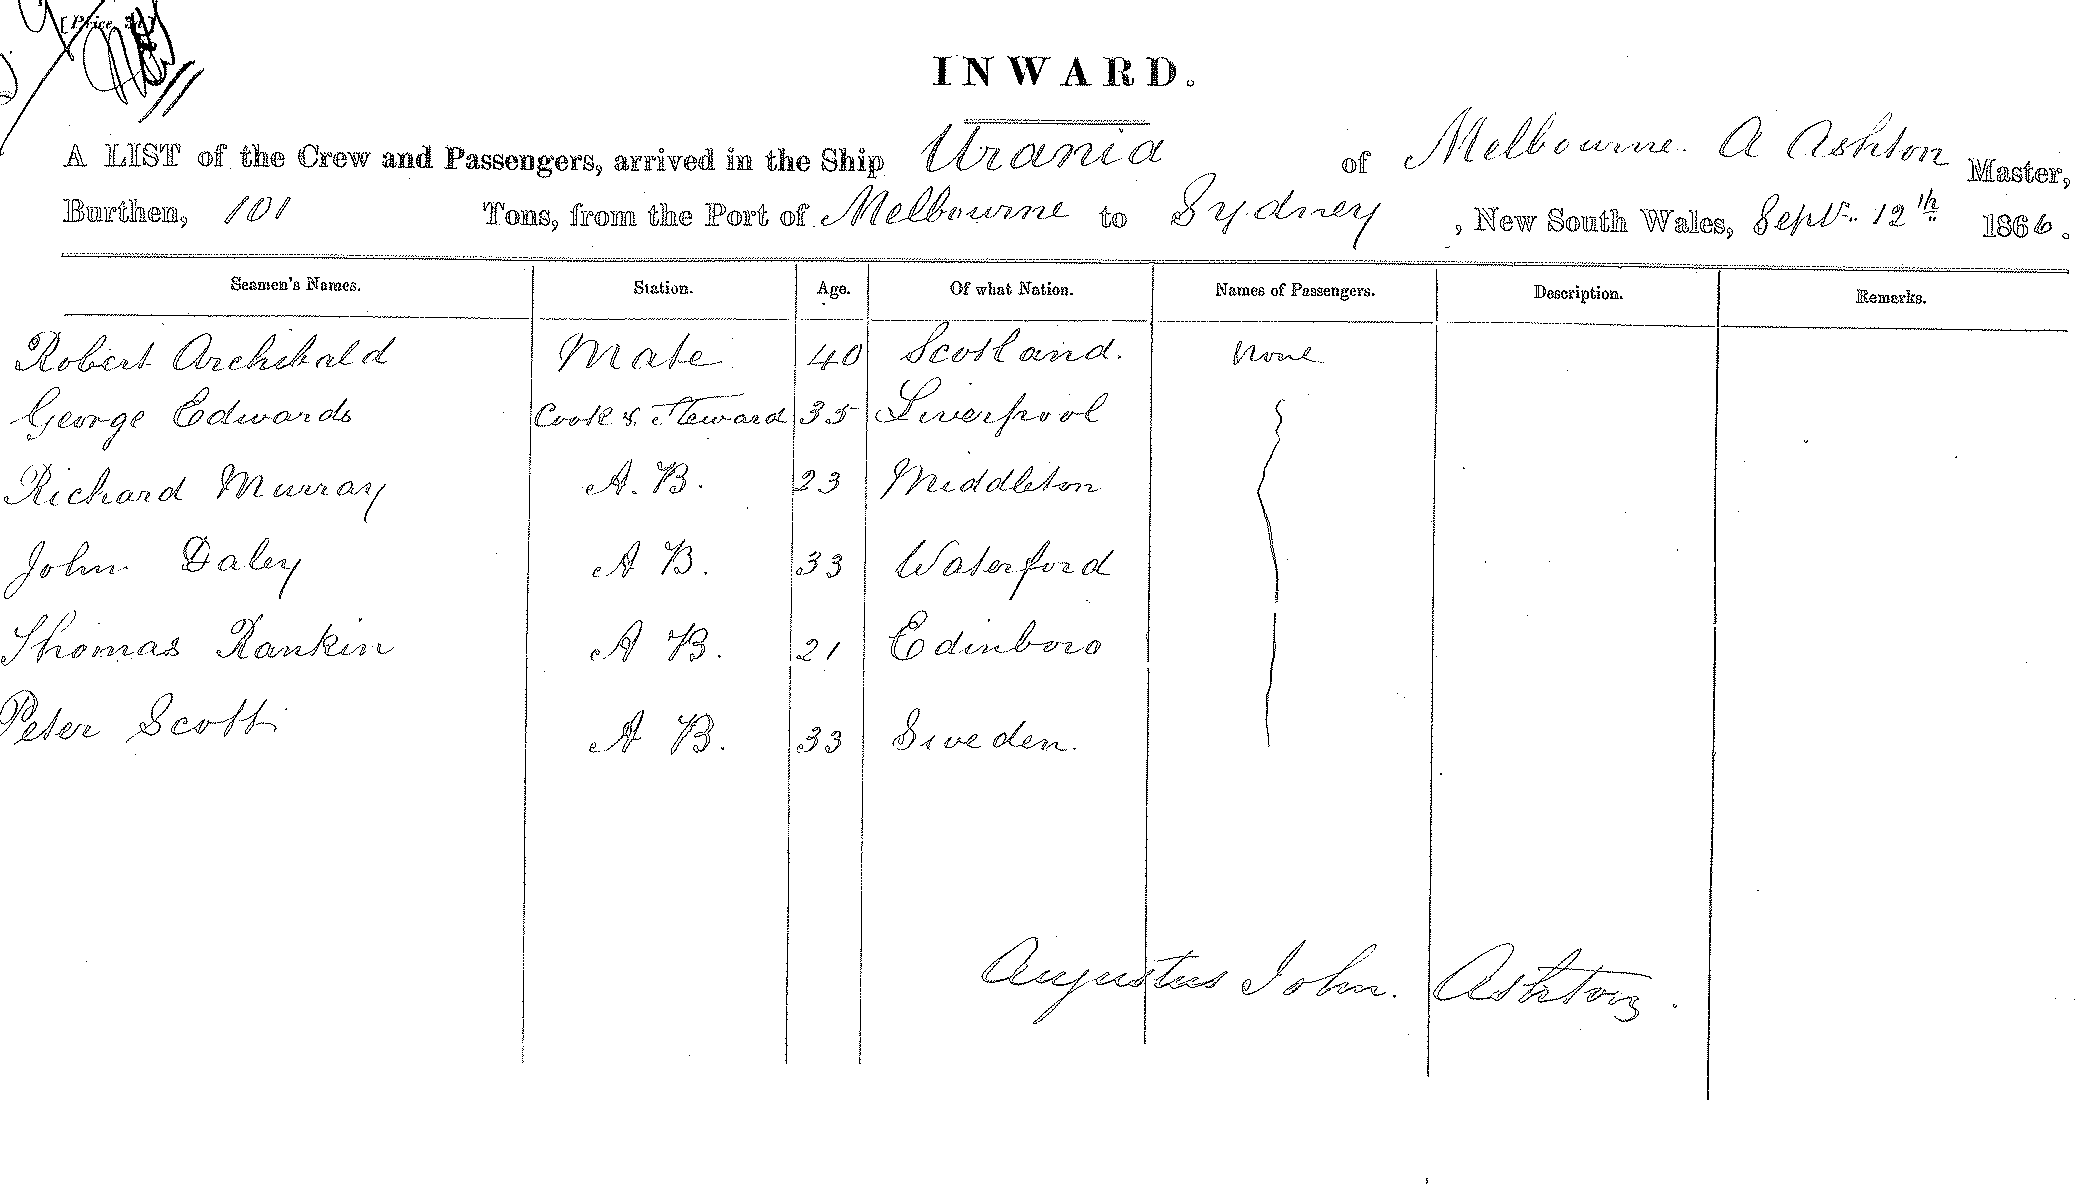 [Price, 3d.]
INWARD.
A LIST of the Crew and Passengers, arrived in the Ship Urania of Melbourne. A Ashton Master,
Burthen, 101 Tons, from the Port of Melbourne to Sydney, New South Wales, Septr. 12th 1866.
Seamen's Names. Station. Age. Of what Nation. Names of Passengers. Description. Remarks.
Robert Archibald Mate 40 Scotland. None
George Edwards Cook & Steward 35 Liverpool
Richard Murray A. B. 23 Middleton
John Daley A B. 33 Waterford
Thomas Rankin A B. 21 Edinboro
Peter Scott A B. 33 Sweden.
Augustus John. Ashton.